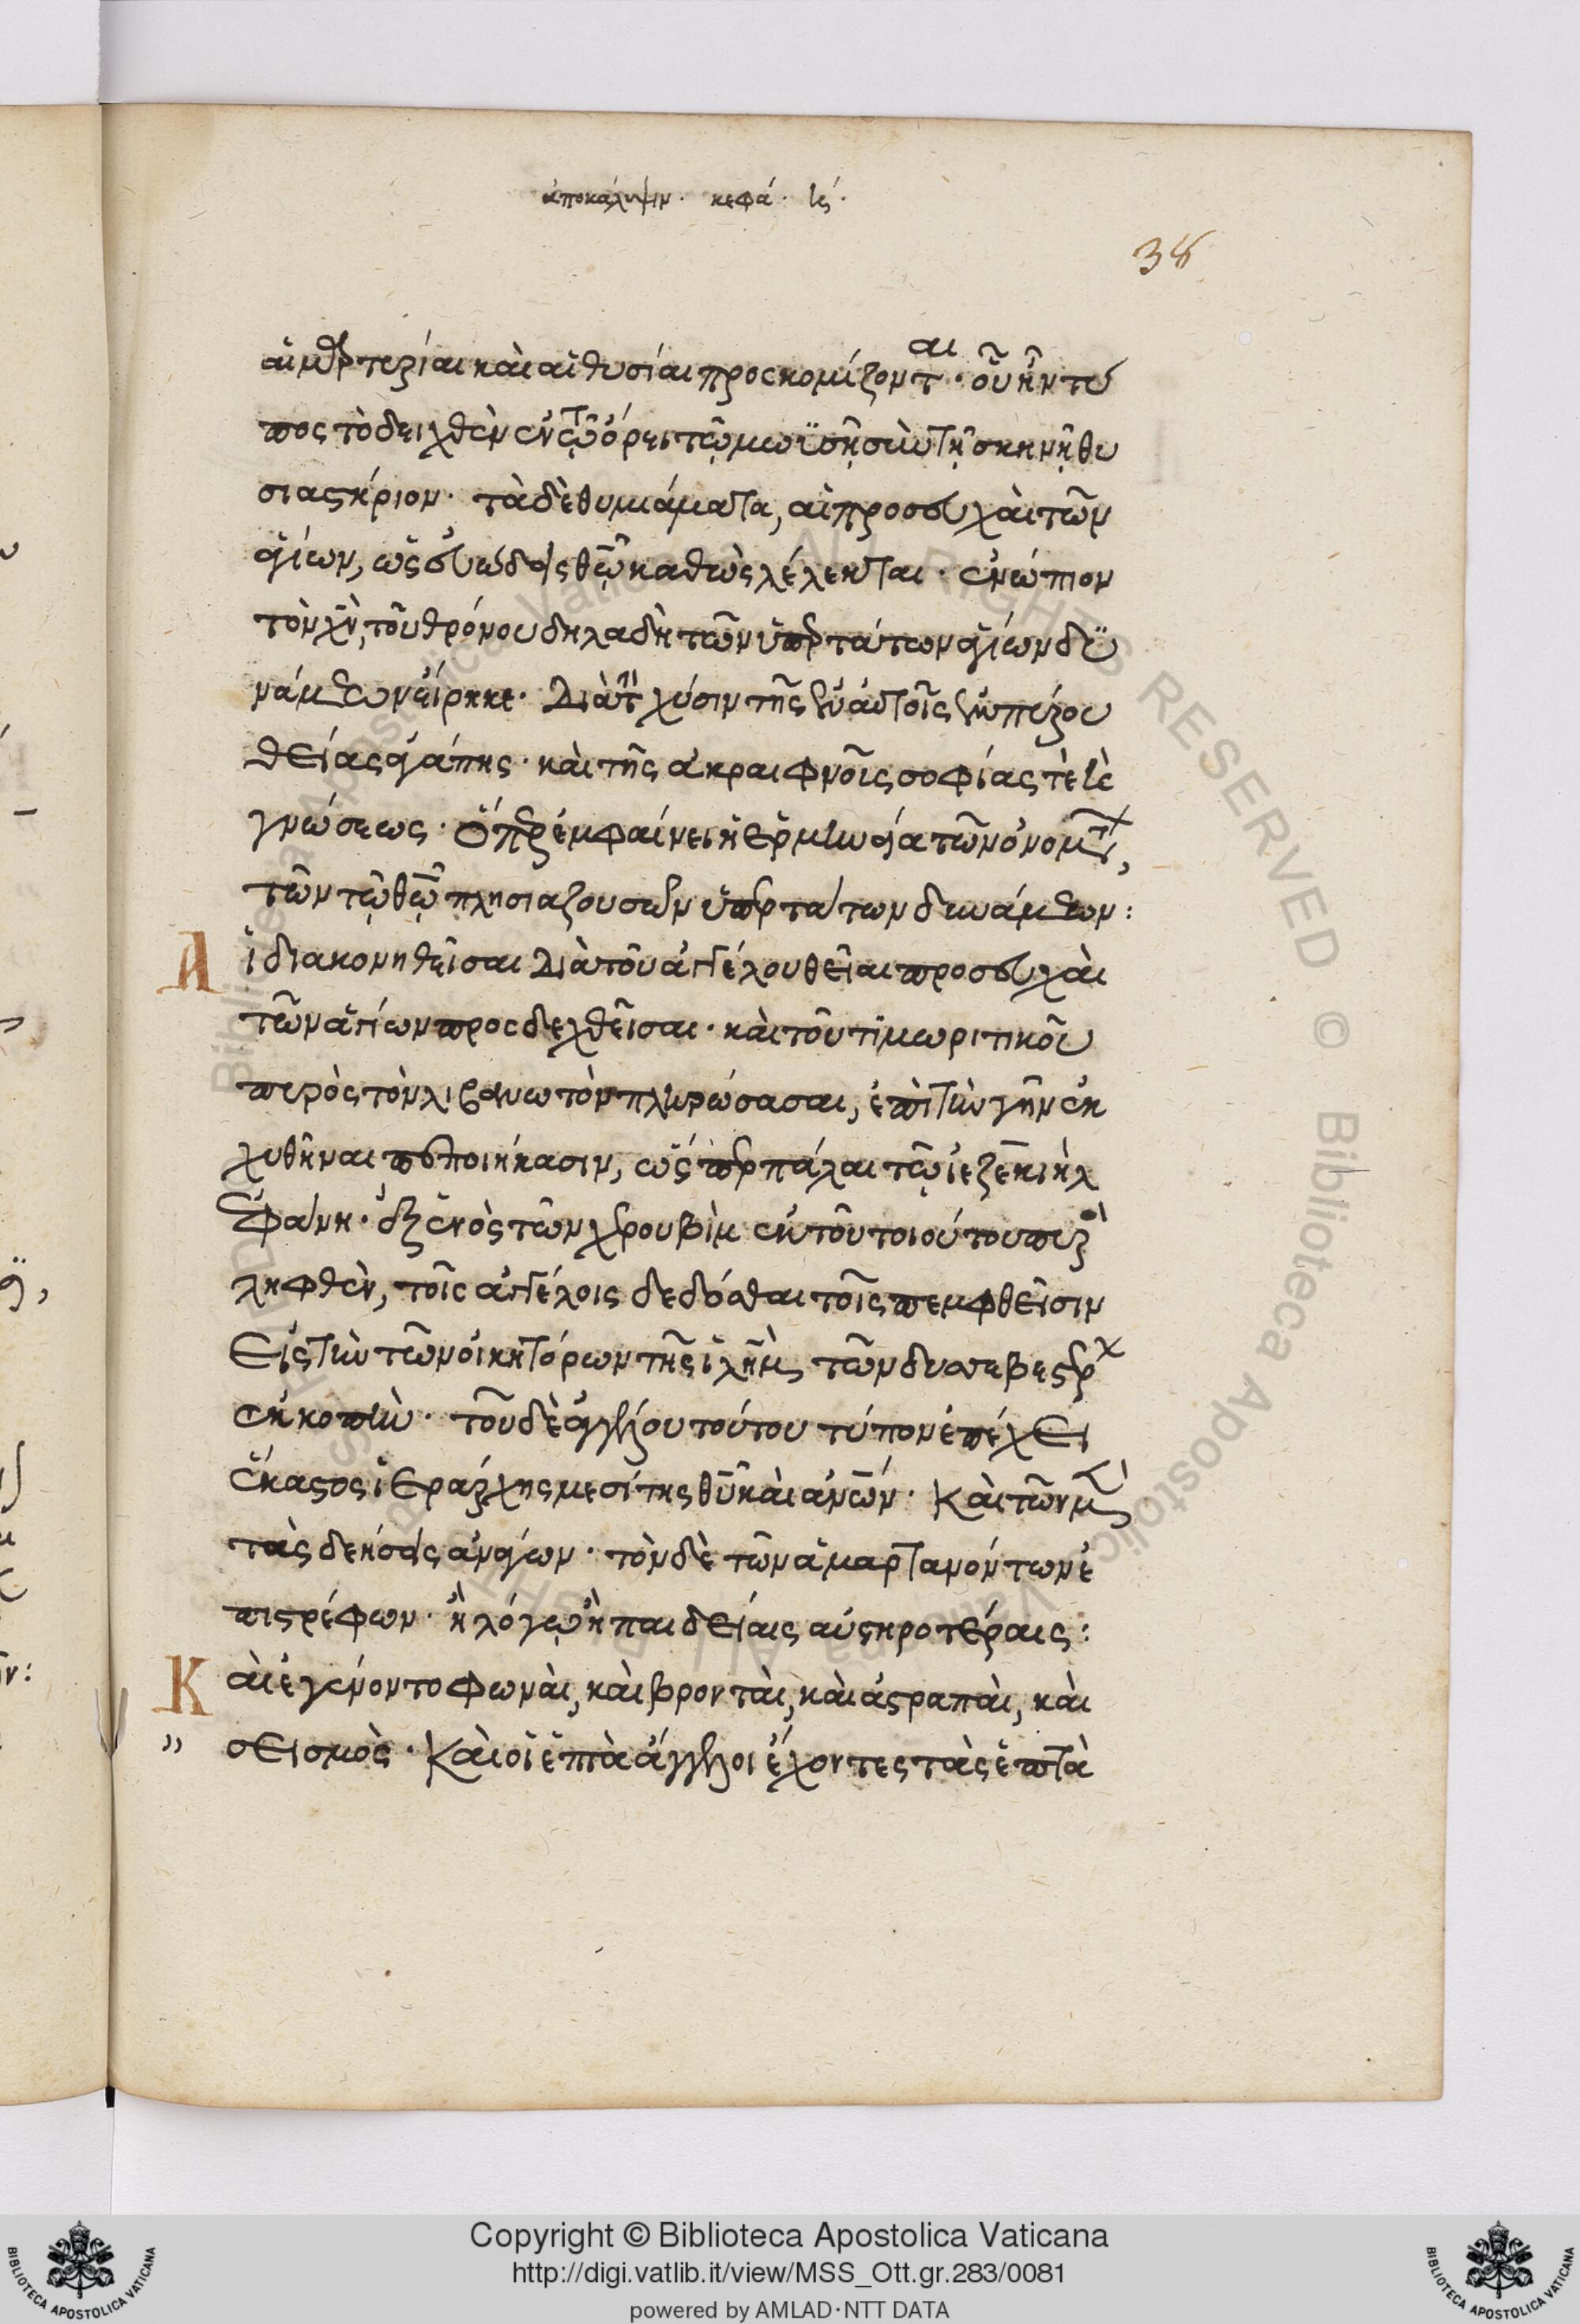 ἀποκάλυψιν· κεφά· ις·
38
αἱ μαρτυρίαι καὶ αἱ θυσίαι προσκομίζονται· οὗ ἦν τύ
πος τὸ δειχθὲν ἐν τῷ ὄρει τῷ μωϋσῇ σὺν τῇ σκηνῇ θυ
σιαστήριον· τὰ δὲ θυμιάματα, αἱ προσευχαὶ τῶν
ἁγίων, ὡς εὐώδεις θῶ καθὼς λέλεκται· ἐνώπιον
τὸν χν, τοῦ θρόνου δηλαδὴ τῶν ὑπερτάτων ἁγίων δυ
νάμεων εἴρηκε· διὰ τὴν χύσιν τῆς ἐν αὐτοῖς ἐμπύρου
θείας ἀγάπης· καὶ τῆς ἀκραιφνοῦς σοφίας τὲ καὶ
γνώσεως· ὅπερ ἐμφαίνει ἡ ἑρμηνεία τῶν ὀνομάτων,
τῶν τῷ θῶ πλησιαζουσῶν ὑπερτάτων δυνάμεων:
Αἱ διακομηθεῖσαι διὰ τοῦ ἀγγέλου θεῖαι προσευχαὶ
τῶν ἁγίων προσδεχθεῖσαι· καὶ τοῦ τιμωριτικοῦ
πυρὸς τὸν λιβανωτὸν πληρώσασαι, ἐπὶ τὴν γῆν ἐκ
χυθῆναι πεποιήκασιν, ὥσπερ πάλαι τῷ ἰεζεκιὴλ
ἐφάνη· ἐξ ἑνὸς τῶν χερουβὶμ ἐκ τοῦ τοιούτου πυρὸς
ληφθὲν, τοῖς ἀγγέλοις δεδόσθαι τοῖς πεμφθεῖσιν
εἰς τὴν τῶν οἰκητόρων τῆς ιλημ τῶν δυσσεβεστέρων
ἐκκοπὴν· τοῦ δὲ ἀγγέλου τούτου τύπον ἐπέχει
ἕκαστος ἱεράρχης μεσίτης θυ καὶ ἀνων· καὶ τῶν μὲν
τὰς δεήσεις ἀνάγων· τὸν δὲ τῶν ἁμαρτανόντων ἐ
πιστρέφων· ἢ λόγῳ ἢ παιδείαις αὐστηροτέραις:
Καὶ ἐγένοντο φωναὶ, καὶ βρονταὶ, καὶ ἀστραπαὶ, καὶ
» σεισμὸς· Καὶ οἱ ἑπτὰ ἄγγελοι ἔχοντες τὰς ἑπτὰ
Copyright © Biblioteca Apostolica Vaticana
http://digi.vatlib.it/view/MSS_Ott.gr.283/0081
powered by AMLAD·NTT DATA